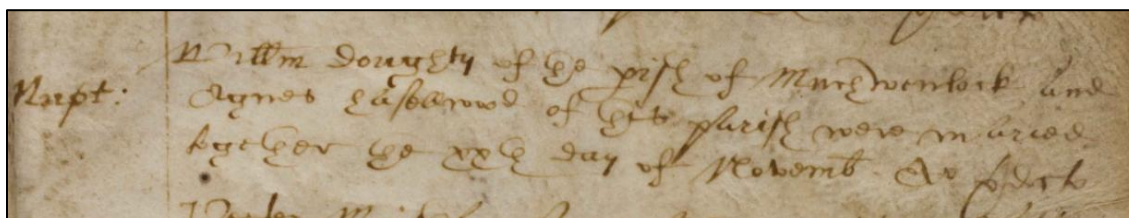 Willm doughty of the pish of Muchwenlock and
Nupt: Agnes haselwood of this parish were maried
together the xxth day of Novemb. Ao pdicto